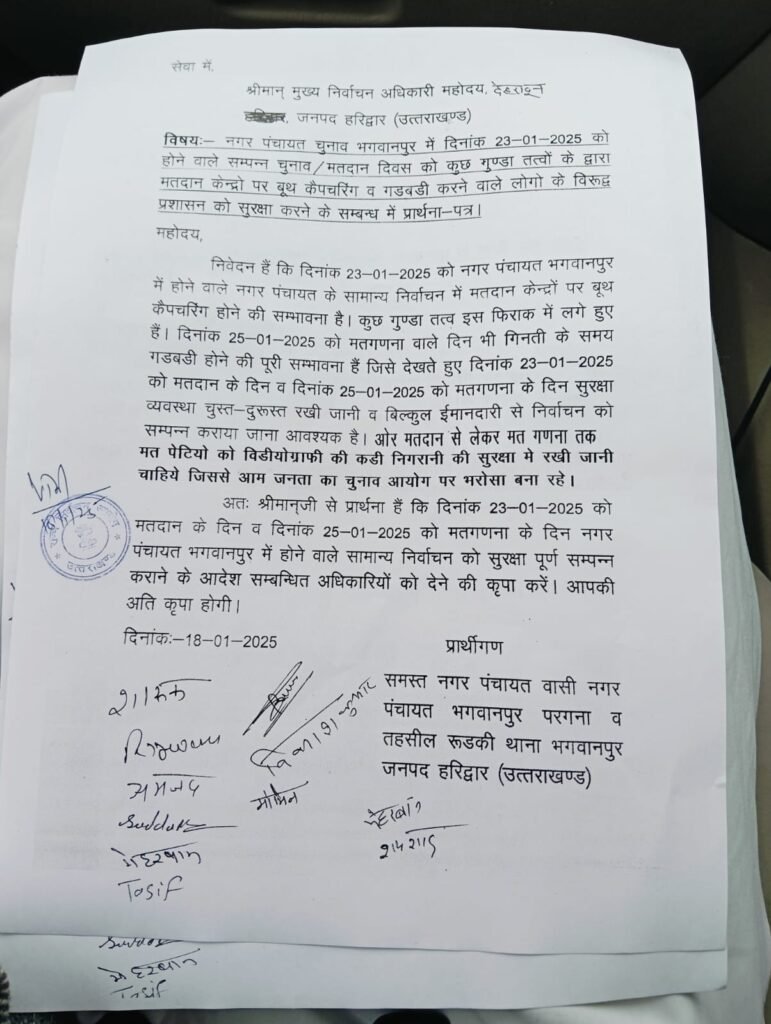 सेवा में,
श्रीमान् मुख्य निर्वाचन अधिकारी महोदय, देहरादून
जनपद हरिद्वार (उत्तराखण्ड)
विषयः– नगर पंचायत चुनाव भगवानपुर में दिनांक 23–01–2025 को
होने वाले सम्पन्न चुनाव/मतदान दिवस को कुछ गुण्डा तत्वों के द्वारा
मतदान केन्द्रो पर बूथ कैपचरिंग व गडबडी करने वाले लोगो के विरूद्व
प्रशासन को सुरक्षा करने के सम्बन्ध में प्रार्थना–पत्र।
महोदय,
निवेदन हैं कि दिनांक 23–01–2025 को नगर पंचायत भगवानपुर
में होने वाले नगर पंचायत के सामान्य निर्वाचन में मतदान केन्द्रों पर बूथ
कैपचरिंग होने की सम्भावना है। कुछ गुण्डा तत्व इस फिराक में लगे हुए
हैं। दिनांक 25–01–2025 को मतगणना वाले दिन भी गिनती के समय
गडबडी होने की पूरी सम्भावना हैं जिसे देखते हुए दिनांक 23–01–2025
को मतदान के दिन व दिनांक 25–01–2025 को मतगणना के दिन सुरक्षा
व्यवस्था चुस्त–दुरूस्त रखी जानी व बिल्कुल ईमानदारी से निर्वाचन को
सम्पन्न कराया जाना आवश्यक है। ओर मतदान से लेकर मत गणना तक
मत पेटियो को विडीयोग्राफी की कडी निगरानी की सुरक्षा मे रखी जानी
चाहिये जिससे आम जनता का चुनाव आयोग पर भरोसा बना रहे।
अतः श्रीमान्जी से प्रार्थना हैं कि दिनांक 23–01–2025 को
मतदान के दिन व दिनांक 25–01–2025 को मतगणना के दिन नगर
पंचायत भगवानपुर में होने वाले सामान्य निर्वाचन को सुरक्षा पूर्ण सम्पन्न
कराने के आदेश सम्बन्धित अधिकारियों को देने की कृपा करें। आपकी
अति कृपा होगी।
उत्तराखण्ड
दिनांकः–18–01–2025
प्रार्थीगण
समस्त नगर पंचायत वासी नगर
पंचायत भगवानपुर परगना व
तहसील रूडकी थाना भगवानपुर
जनपद हरिद्वार (उत्तराखण्ड)
विकाश कुमार
अमजद
मोमिन
मेहरबान
मेहरबान
Tosif
मेहरबान
Tosif